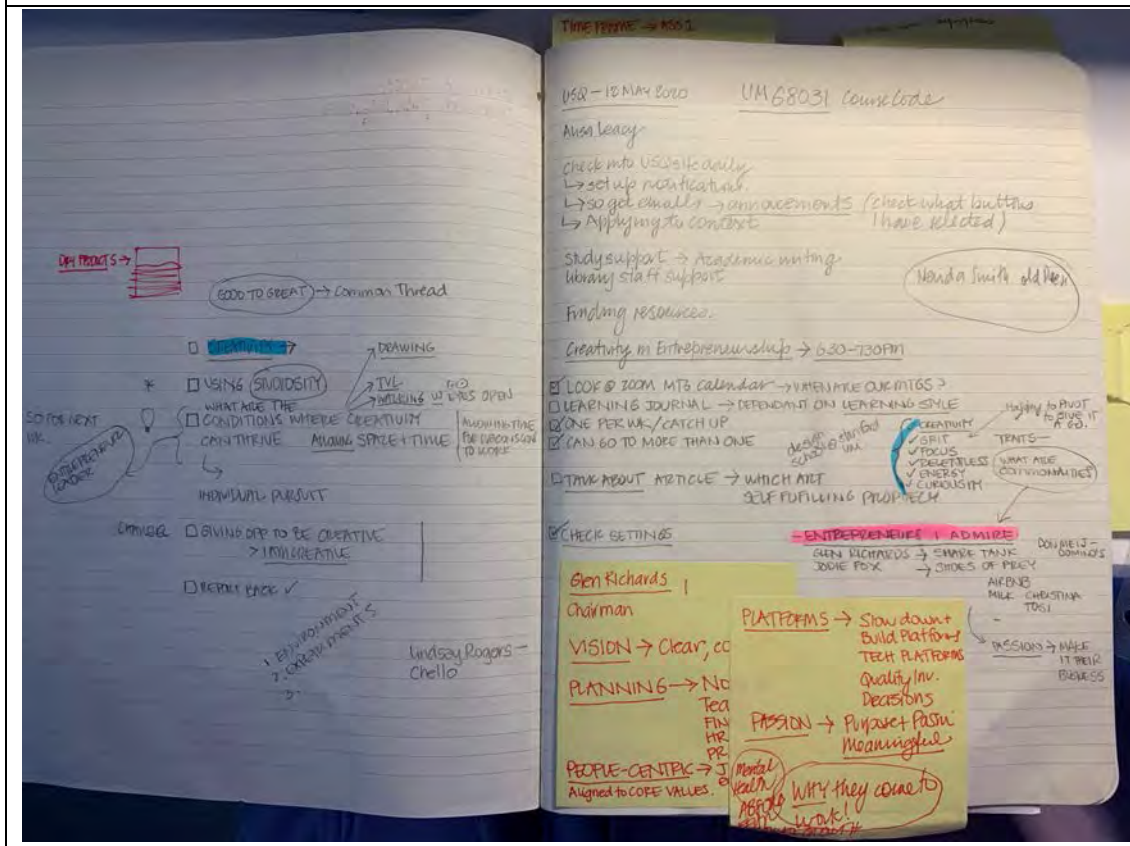 TIME FRAME → ASS 1
DRY PRODUCTS →
GOOD TO GREAT → Common Thread
□ CREATIVITY →
→ DRAWING
* □ USING STUDIOSITY
→ TVL
→ WALKING W EYES OPEN
WHAT ARE THE
□ CONDITIONS WHERE CREATIVITY
CAN THRIVE ALLOWING SPACE + TIME
ALLOWING TIME
FOR SUBCONSCIOUS
TO WORK
SO FOR NEXT
WK.
ENTREPRENEUR
LEADER
INDIVIDUAL PURSUIT
□ GIVING OPP TO BE CREATIVE
> I AM CREATIVE
□ REPORT BACK ✓
1. ENVIRONMENT
2. EXPERIMENTS
3.
Lindsay Rogers –
Chello
USQ – 12 MAY 2020 UMG8031 Course Code
check into USQ site daily
↳ set up notifications.
↳ so get emails → annocements (check what buttons
I have selected)
↳ Applying to context
Study support → Academic writing
library staff support
Smith old
Finding resources.
Creativity in Entrepreneurship → 630-730PM
☑ LOOK @ ZOOM MTG calendar → WHEN ARE OUR MTGS?
□ LEARNING JOURNAL → DEPENDANT ON LEARNING STYLE
☑ ONE PER WK/CATCH UP
☑ CAN GO TO MORE THAN ONE
design
school @ stanford
UNI
✓ CREATIVITY
✓ GRIT
✓ FOCUS
✓ RELENTLESS
✓ ENERGY
✓ CURIOUSITY
to PIVOT
TO GIVE IT
A GO.
TRAITS —
WHAT ARE
COMMONALITIES
□ TALK ABOUT ARTICLE → WHICH ART
SELF FUFILLING PROPTECH
☑ CHECK SETTINGS
- ENTREPRENEURS I ADMIRE
GLEN RICHARDS → SHARK TANK
JODIE FOX → SHOES OF PREY
DON MEIJ –
DOMINO'S
AIRBNB
MILK CHRISTINA
TOSI
-
PASSION → MAKE
IT THEIR
BUSINESS
Glen Richards
Chairman
VISION → Clear, co
PLANNING → No
Tea
FIN
HR
PR
PEOPLE-CENTRIC → J
Aligned to CORE VALUES.
PLATFORMS → Slow down +
Build Platforms
TECH PLATFORMS
Quality Inv.
Decisions
PASSION → Purpose + Passn
Meaningful
Mental
Health
WHY they come to
work!